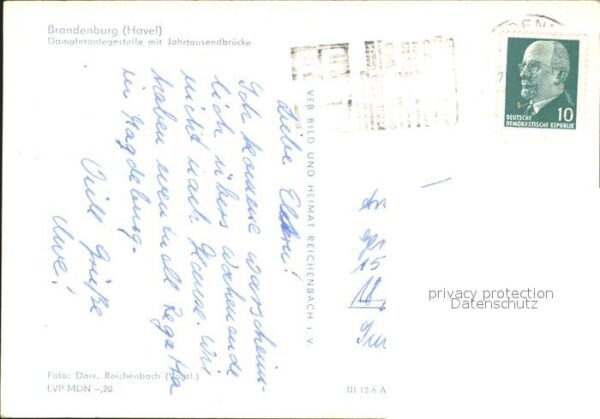 Brandenburg (Havel)
Dampferanlegestelle mit Jahrtausendbrücke
Liebe Eltern!
Ich komme warschein-
lich übers Wochenende
nicht nach Hause. Wir
haben eventuell Regatta
in Magdeburg.
Viele Grüße
Uwe!
VEB BILD UND HEIMAT REICHENBACH i. V.
DEUTSCHE
DEMOKRATISCHE REPUBLIK
10
15
privacy protection
Datenschutz
Foto: Darr, Reichenbach (Vogtl.)
EVP MDN -,20
III 18 6 A